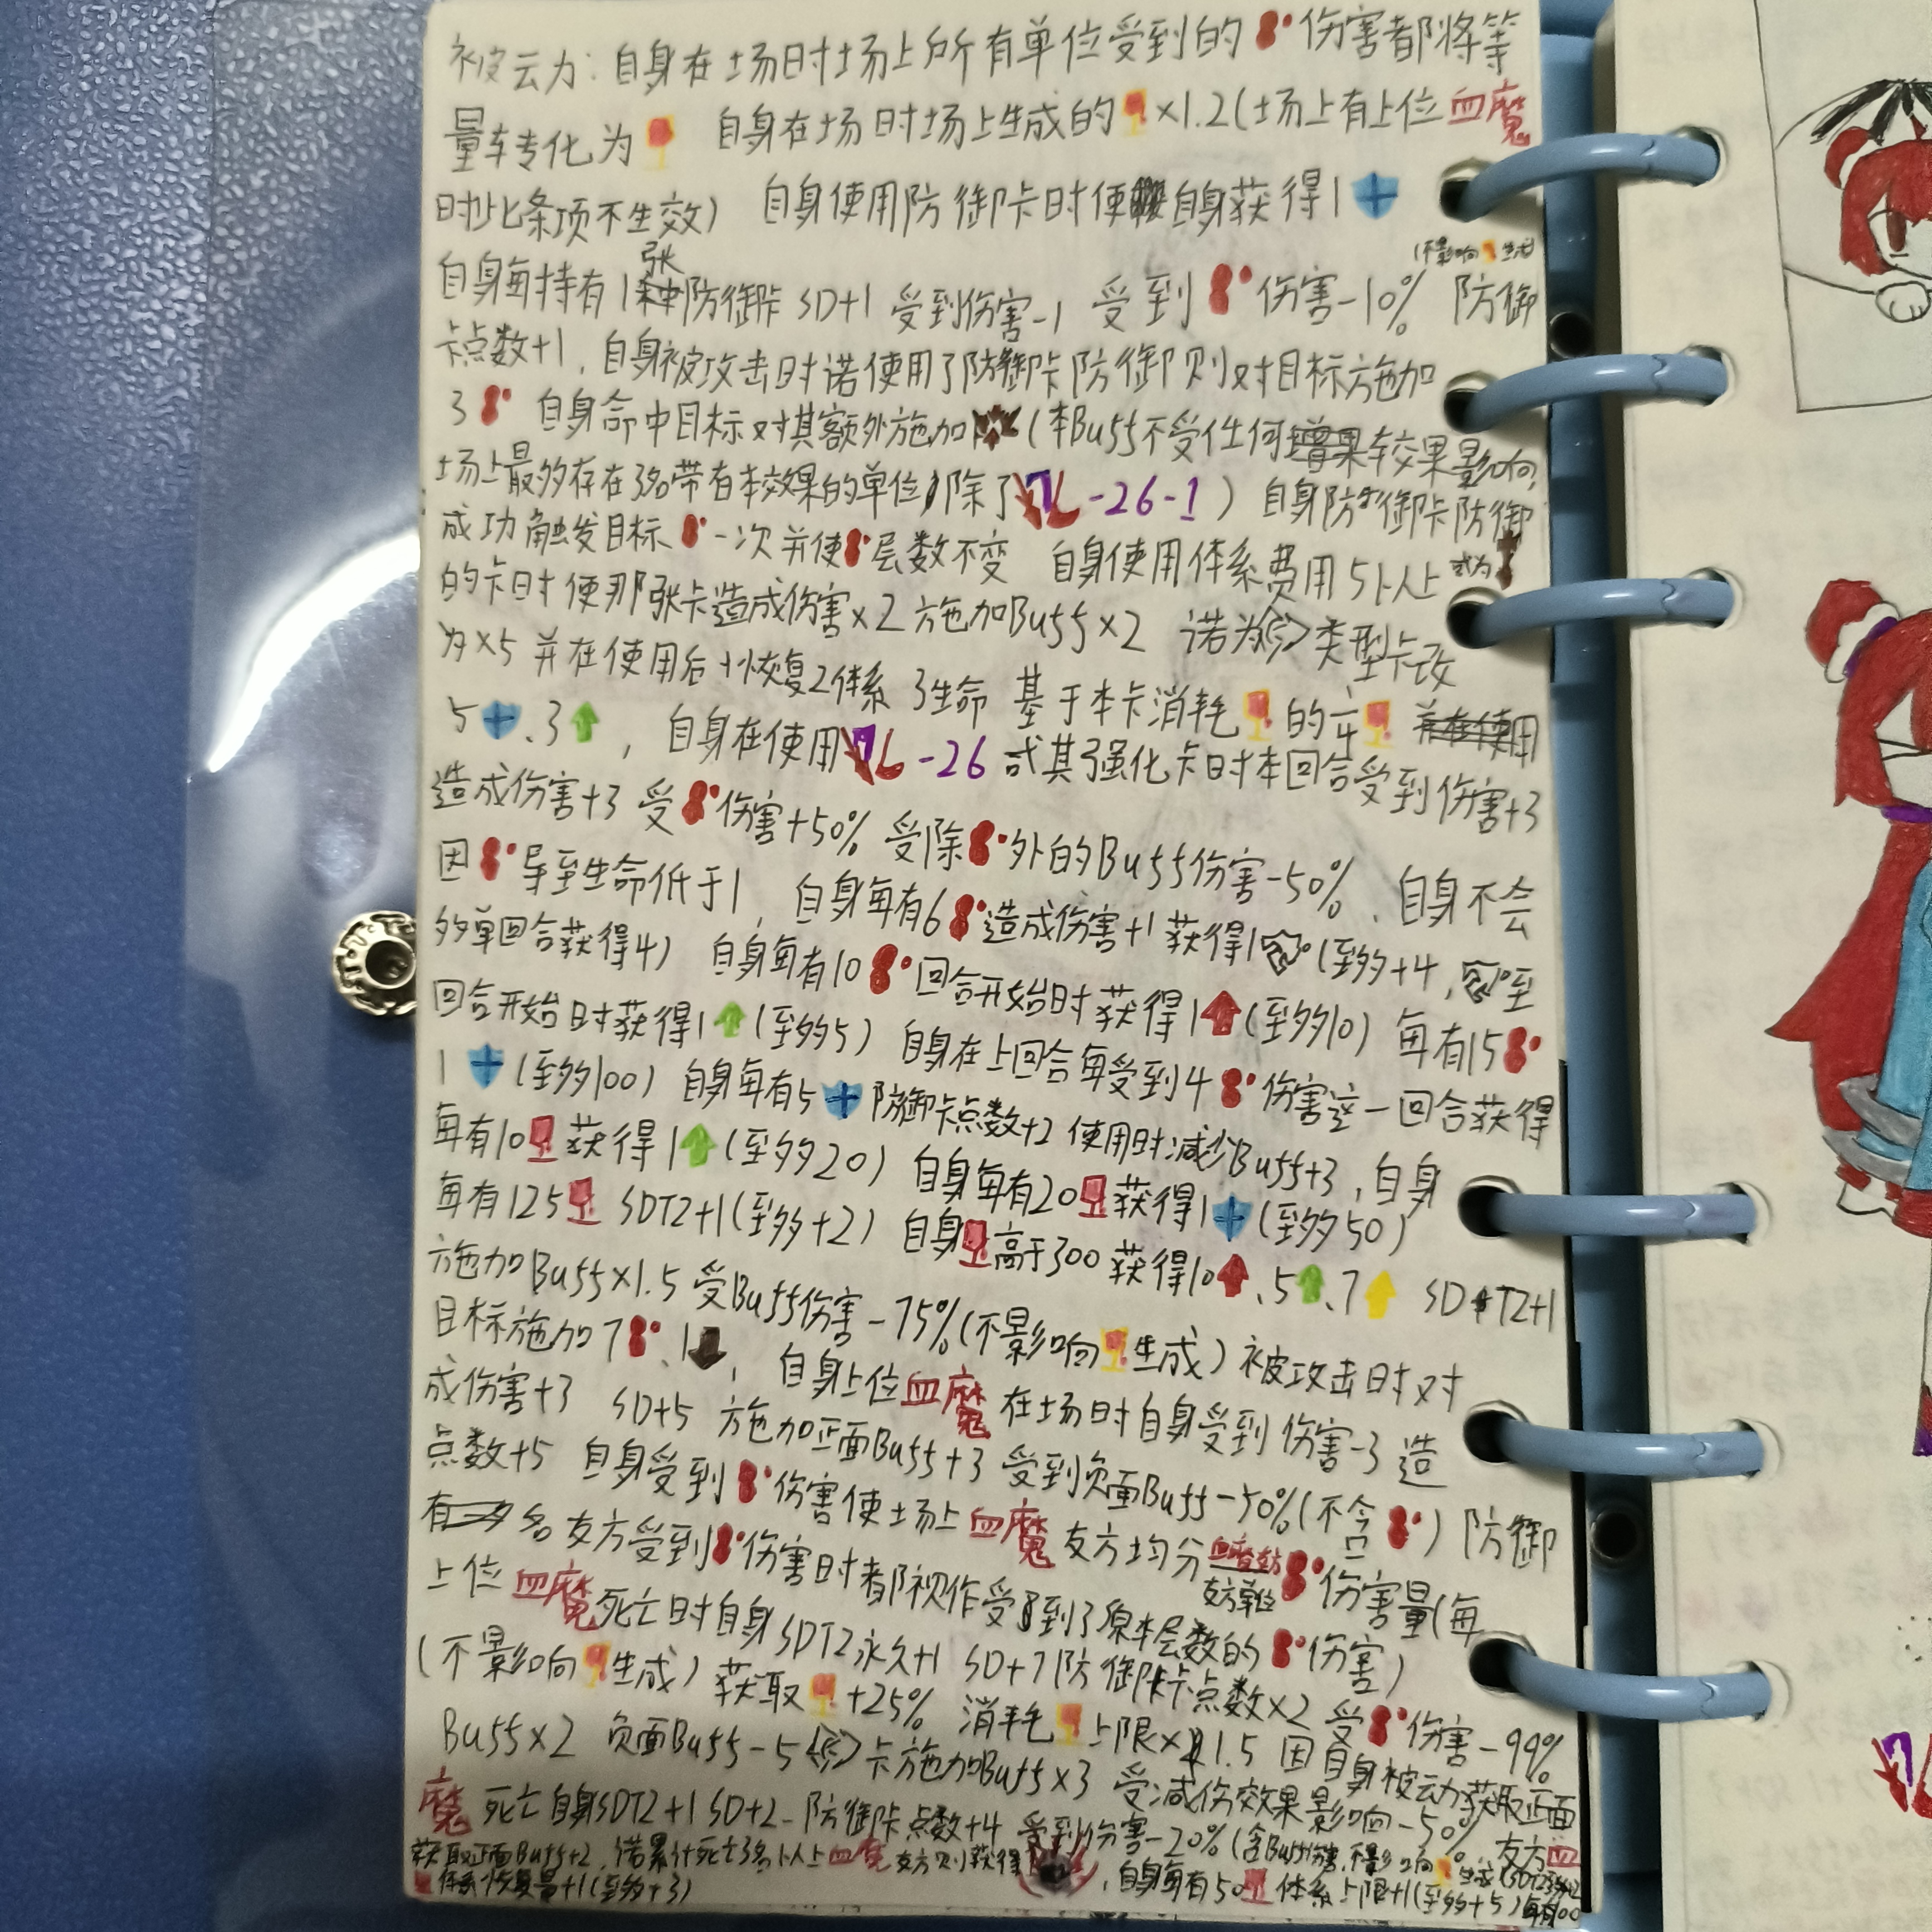 被动力：自身在场时场上所有单位受到的 伤害都将等
量转化为 自身在场时场上生成的 ×1.2(场上有上位血魔
时此条项不生效) 自身使用防御卡时使自身获得1
(不影响 生成)
自身每持有1张防御卡 SD+1 受到伤害-1 受到 伤害-10% 防御
卡点数+1, 自身被攻击时诺使用了防御卡防御则对目标施加
3 自身命中目标对其额外施加 (本Buff不受任何 效果影响,
场上最多存在3名带有本效果的单位 除了 L-26-1) 自身防御卡防御
成功触发目标 一次并使 层数不变 自身使用体系费用5以上 或为
的卡时使那张卡造成伤害×2 施加Buff×2 诺为 类型卡改
为×5 并在使用后恢复2体系 3生命 基于本卡消耗 的
5 、3 , 自身在使用 L-26 或其强化卡时本回合受到伤害+3
造成伤害+3 受 伤害+50% 受除 外的Buff伤害-50%、自身不会
因 导至生命低于1, 自身每有6 造成伤害+1 获得1 (至多+4, 至
多单回合获得4) 自身每有10 回合开始时获得1 (至多10) 每有15
回合开始时获得1 (至多5) 自身在上回合每受到4 伤害这一回合获得
1 (至多100) 自身每有5 防御卡点数+2 使用时减少Buff+3, 自身
每有10 获得1 (至多20) 自身每有20 获得1 (至多50)
每有125 SDT2+1(至多+2) 自身 高于300 获得10 、5 、7 SD T2+1
施加Buff×1.5 受Buff伤害-75%(不影响 生成) 被攻击时对
目标施加7 、1 , 自身上位血魔在场时自身受到伤害-3 造
成伤害+3 SD+5 施加正面Buff+3 受到负面Buff-50%(不含 ) 防御
点数+5 自身受到 伤害使场上血魔友方均分 伤害量(每
友方单位
有 名友方受到 伤害时都视作受到了原本层数的 伤害)
上位血魔死亡时自身SDT2永久+1 SD+7 防御卡点数×2 受 伤害-99%
(不影响 生成) 获取 +25% 消耗 上限×1.5 因自身被动获取正面
Buff×2 负面Buff-5 卡施加Buff×3 受减伤效果影响-50% 友方血
魔死亡自身SDT2+1 SD+2 防御卡点数+4 受到伤害-20%(含Buff伤害,不影响 生成)
获取正面Buff+2, 诺累计死亡3名以上血魔友方则获得 , 自身每有50 体系上限+1(至多+5) 每有100
体系恢复量+1(至多+3)